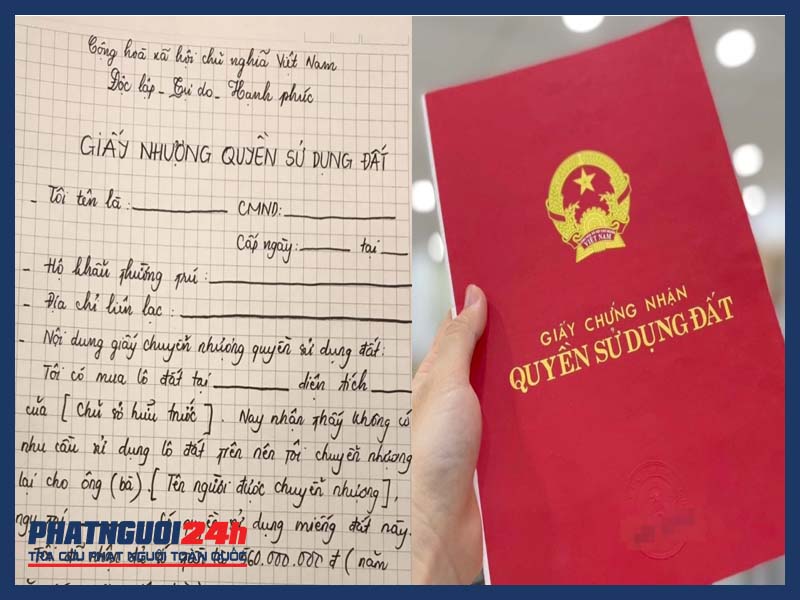 Cộng hoà xã hội chủ nghĩa Việt Nam
Độc lập - Tự do - Hạnh phúc
GIẤY NHƯỢNG QUYỀN SỬ DỤNG ĐẤT
- Tôi tên là: CMND:
Cấp ngày: tại
- Hộ khẩu thường trú:
- Địa chỉ liên lạc:
- Nội dung giấy chuyển nhượng quyền sử dụng đất:
Tôi có mua lô đất tại diện tích
của [Chủ sở hữu trước]. Nay nhận thấy không có
nhu cầu sử dụng lô đất trên nên tôi chuyển nhượng
lại cho ông (bà) [Tên người được chuyển nhượng],
quyền sử dụng miếng đất này.
60.000.000 đ (năm
PHATNGUOI24h
TRA CỨU PHẠT NGUỘI TOÀN QUỐC
VIỆT NAM
GIẤY CHỨNG NHẬN
QUYỀN SỬ DỤNG ĐẤT